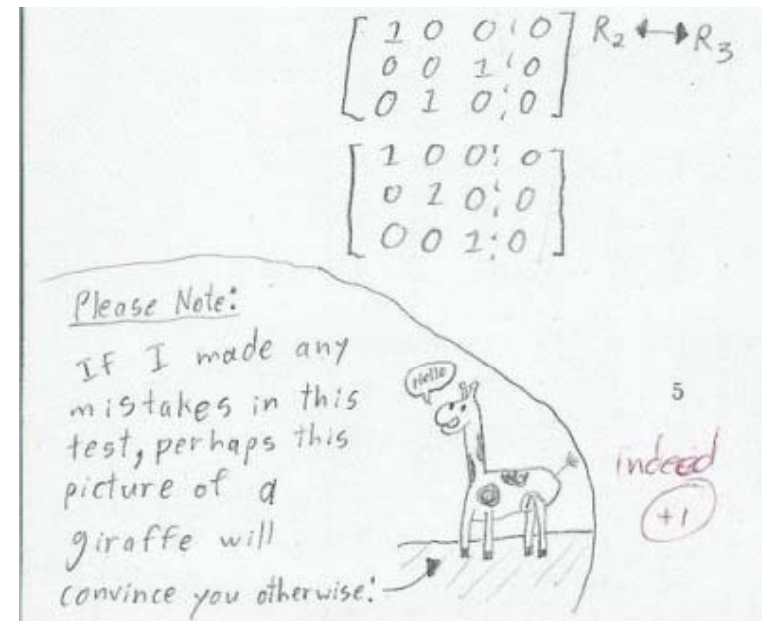 1 0 0 ¦ 0 R₂ ↔ R₃
0 0 1 ¦ 0
0 1 0 ¦ 0
1 0 0 ¦ 0
0 1 0 ¦ 0
0 0 1 ¦ 0
Please Note:
If I made any
mistakes in this
test, perhaps this
picture of a
giraffe will
convince you otherwise:
Hello
5
indeed
+1